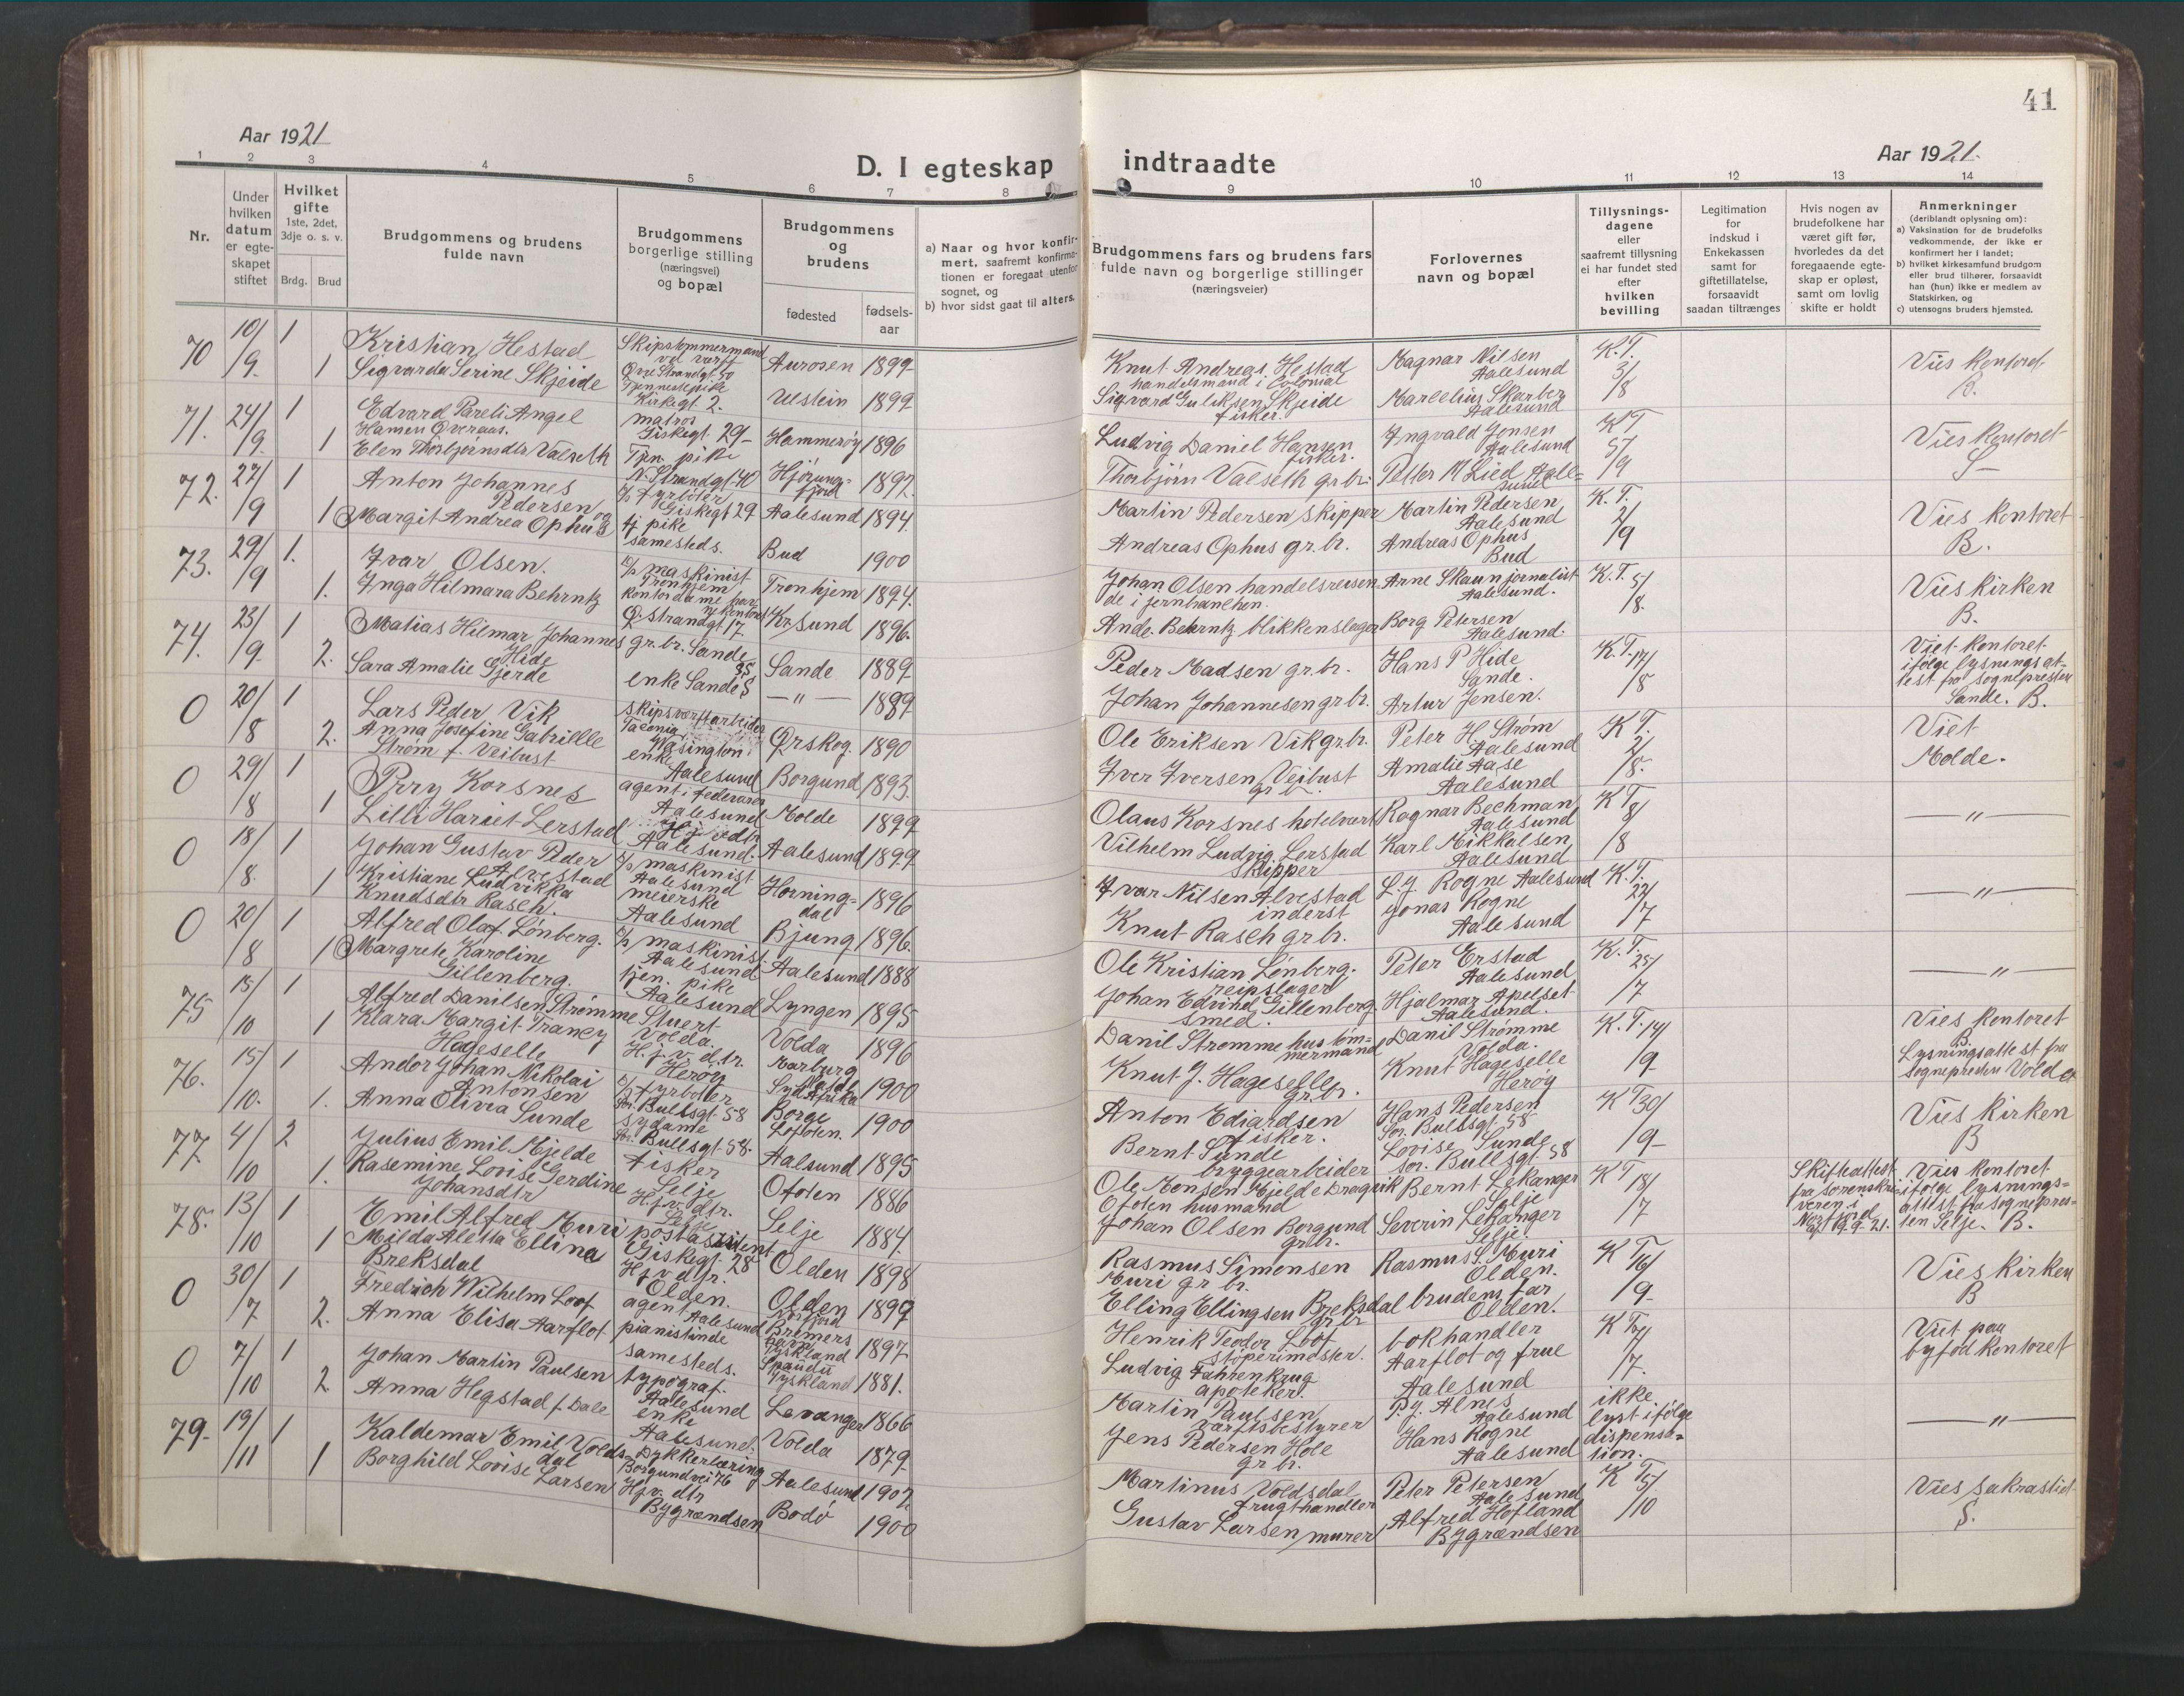 41
Aar 1921
Aar 1921.
D. I egteskap indtraadte
1 2 3 4 5 6 7 8 9 10 11 12 13 14
Nr.
Under hvilken datum er egteskapet stiftet
Hvilket gifte 1ste, 2det, 3dje o. s. v.
Brdg. Brud
Brudgommens og brudens fulde navn
Brudgommens borgerlige stilling (næringsvei) og bopæl
Brudgommens og brudens
fødested
fødsels-aar
a) Naar og hvor konfirmert, saafremt konfirmationen er foregaat utenfor sognet, og
b) hvor sidst gaat til alters.
Brudgommens fars og brudens fars fulde navn og borgerlige stillinger (næringsveier)
Forlovernes navn og bopæl
Tillysningsdagene eller saafremt tillysning ei har fundet sted efter hvilken bevilling
Legitimation for indskud i Enkekassen samt for giftetillatelse, forsaavidt saadan tiltrænges
Hvis nogen av brudefolkene har været gift før, hvorledes da det foregaaende egteskap er opløst, samt om lovlig skifte er holdt
Anmerkninger (deriblandt oplysning om):
a) Vaksination for de brudefolks vedkommende, der ikke er konfirmert her i landet;
b) hvilket kirkesamfund brudgom eller brud tilhører, forsaavidt han (hun) ikke er medlem av Statskirken, og
c) utensogns bruders hjemsted.
70 10/9. 1 Kristian Hestad Skipstømmermand ved værft Øvre Strandgt. 50 Aurosen 1899 Knut Andreas Hestad handelsmand i Colonial Magnar Nilsen Aalesund K.T. 3/8 Vies kontoret
1 Sigvarda Serine Skjeide Tjenestepike Kirkegt 2. Ulstein 1899 Sigvard Guliksen Skjeide fisker. Marcelius Skarbø Aalesund B.
71. 24/9. 1 Edvard Pareli Angel Hamen Overaas. matros Giskegt. 29 Hammerøy 1896 Ludvig Daniel Hansen fisker. Ingvald Jonsen Aalesund KT 5/9 Vies kontoret
1 Elen Thorbjørnsdtr Valseth Tjen. pike N. Strandgt 40 Hjørungfjord 1892. Thorbjørn Valseth gr.br. Petter M Lied Aalesund S
72. 27/9 1 Anton Johannes Pedersen og d/s fyrbøter Giskegt 29 Aalesund 1894. Martin Pedersen skipper Martin Pedersen Aalesund K.T. 2/9 Vies kontoret
1 Margit Andrea Ophus tj pike samesteds. Bud 1900 Andreas Ophus gr.br. Andreas Ophus Bud B.
73. 29/9 1. Ivar Olsen. d/s maskinist Tronhjem Tronhjem 1894. Johan Olsen handelsreisende i jernbranchen. Arne Skaun jornalist Aalesund. K.T. 5/8. Vies kirken
1. Inga Hilmara Behrntz kontordame Ø. Strandgt. 17. Kr.sund 1896. Ande. Behrntz blikkenslager Borg Petersen Aalesund. B.
74. 23/9. 1 Matias Hilmar Johannes Hide gr.br. Sande Sande 1889. Peder Madsen gr.br. Hans P Hide Sande. K.T. 14/8 Viet kontoret ifølge lysningsattest fra sognepresten Sande. B.
2. Sara Amalie Gjerde enke Sande — " — 1889 Johan Johannesen gr.br. Artur Jensen.
0 20/8 1 Lars Peder Vik skipsværftarbeider Tacoma Wasington Ørskog. 1890 Ole Eriksen Vik gr.br. Peter H Strøm Aalesund K T. 2/8. Viet
2. Anna Josefine Gabrielle Strøm f. Veibust enke Aalesund Borgund 1893. Iver Iversen Veibust gr b. Amalie Aase Aalesund Molde.
0 29/8 1 Perry Korsnes agent i federaver Aalesund Molde 1899 Olaus Korsnes hotelvært Ragnar Bechman Aalesund KT 8/8 — " —
1 Lilli Hariet Lerstad Hj. v. dtr. Aalesund. Aalesund 1899 Vilhelm Ludvig Lerstad skipper Karl Mikkalsen Aalesund
0 18/8. 1 Johan Gustav Peder Alvestad d/s maskinist Aalesund Horningdal 1896 Ivar Nilsen Alvestad inderst L.J. Rogne Aalesund K.T. 22/7 — " —
1 Kristiane Ludvikka Knudsdtr Rasch. meierske Aalesund Bjung 1896. Knut Rasch gr.br. Jonas Rogne Aalesund
0 20/8 1 Alfred Olaf Lönberg. d/s maskinist Aalesund Aalesund 1888 Ole Kristian Lönberg. reipslager Peter Erstad Aalesund K.T. 25/7 — " —
1 Margrete Karoline Gillenberg. tjen. pike Aalesund Lyngen 1895 Johan Edvind Gillenberg. smed. Hjalmar Apelset Aalesund.
75 15/10 1 Alfred Danilsen Strømme Stuert Volda. Volda 1896 Danil Strømme hustømmermand Danil Strømme Volda. K.T. 14/9. Vies kontoret B.
1 Klara Margit Traney Hageselle H.j.v. dtr. Herøy Marburg Natal Syd Afrika 1900 Knut J. Hageselle gr.br. Knut Hageselle Herøy Lysningsattest fra sognepresten Volda
76. 15/10. 1 Andor Johan Nikolai Antonsen d/s fyrbøter Sør. Bullsgt. 58 Borge Lofoten. 1900 Anton Ediardsen fisker. Hans Pedersen Sør. Bullsgt. 58 K T 30/9 Vies kirken
1. Anna Olivia Sunde sydame Sør. Bullsgt. 58. Aalsund 1895 Bernt Sunde bryggearbeider Lovise Sunde Sør. Bullsgt. 58 B
77. 4/10 2 Julius Emil Mjelde fisker Selje Ofoten 1886 Ole Monsen Mjelde Dragvik Ofoten husmand Bernt Lekanger Selje KT 18/7 Skifteattest fra sorenskriveren i Nordfjord af 19.9.21. Vies kontoret ifølge lysningsattest fra sognepresten Selje. B.
1. Rasemine Lovise Gerdine Johansdtr H.j.v. dtr. Selje Selje 1884. Johan Olsen Borgund gr.br. Severin Lekanger Selje.
78. 13/10 1 Emil Alfred Muri postassistent Giskegt. 28 Olden 1898 Rasmus Simonsen Muri gr br. Rasmus S. Muri Olden. K T 16/9 Vies kirken
1 Milda Aletta Ellina Breksdal Hjv dtr. Olden. Olden Nordfjord 1899 Elling Ellingsen Breksdal gr.br brudens far Olden. B
0 30/7 1 Fredrich Wilhelm Loof agent Aalesund Bremers havn Tyskland 1897 Henrik Teodor Loof støperimester. bokhandler Aarflot og frue Aalesund K T /7. Viet paa byfod kontoret
2. Anna Elisa Aarflot pianistinde samesteds. Spandu Tyskland 1881. Ludvig Fahrenkrug apoteker.
0 7/10 1 Johan Martin Paulsen typograf. Aalesund Levanger 1866 Martin Paulsen værftsbestyrer P.J. Alnes Aalesund ikke lyst ifølge dispensasion. — " —
2. Anna Hegstad f. Dale enke Aalesund. Volda 1879 Jens Pedersen Hole gr br. Hans Rogne Aalesund
79. 19/11 1 Kaldemar Emil Voldsdal Dykkerlæring Borgundvei 76 Aalesund 1902. Martinus Voldsdal frugthandler Peter Petersen Aalesund K T 5/10 Vies sakrastiet
1 Borghild Lovise Larsen Hjv. dtr Bygrændsen Bodö 1900 Gustav Larsen murer Alfred Hofland Bygrændsen S.